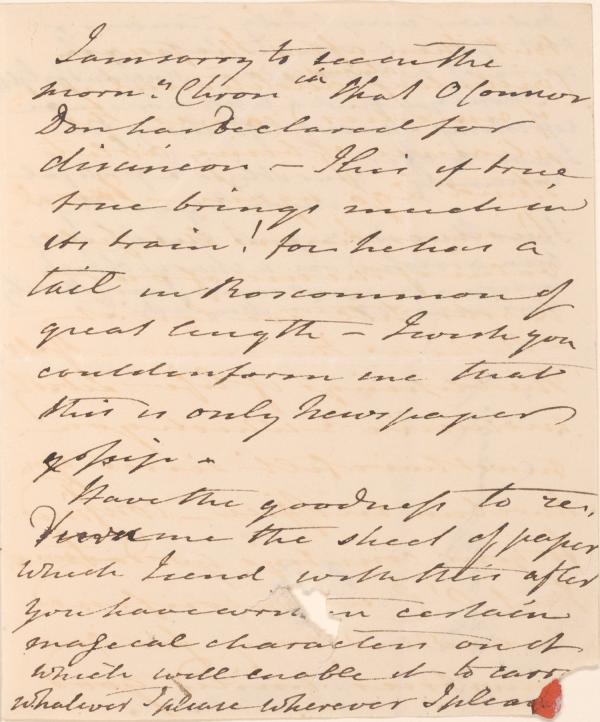 I am sorry to see in the
morng Chronicle that O Connor
Don has declared for
disunion — This if true
true brings much in
its train! for he has a
tail in Roscommon of
great length — I wish you
could inform me that
this is only Newspaper
gossip.
Have the goodness to re,
turn me the sheet of paper
which I send with this after
you have written certain
magical characters on it
which will enable it to carry
whatever I please wherever I please